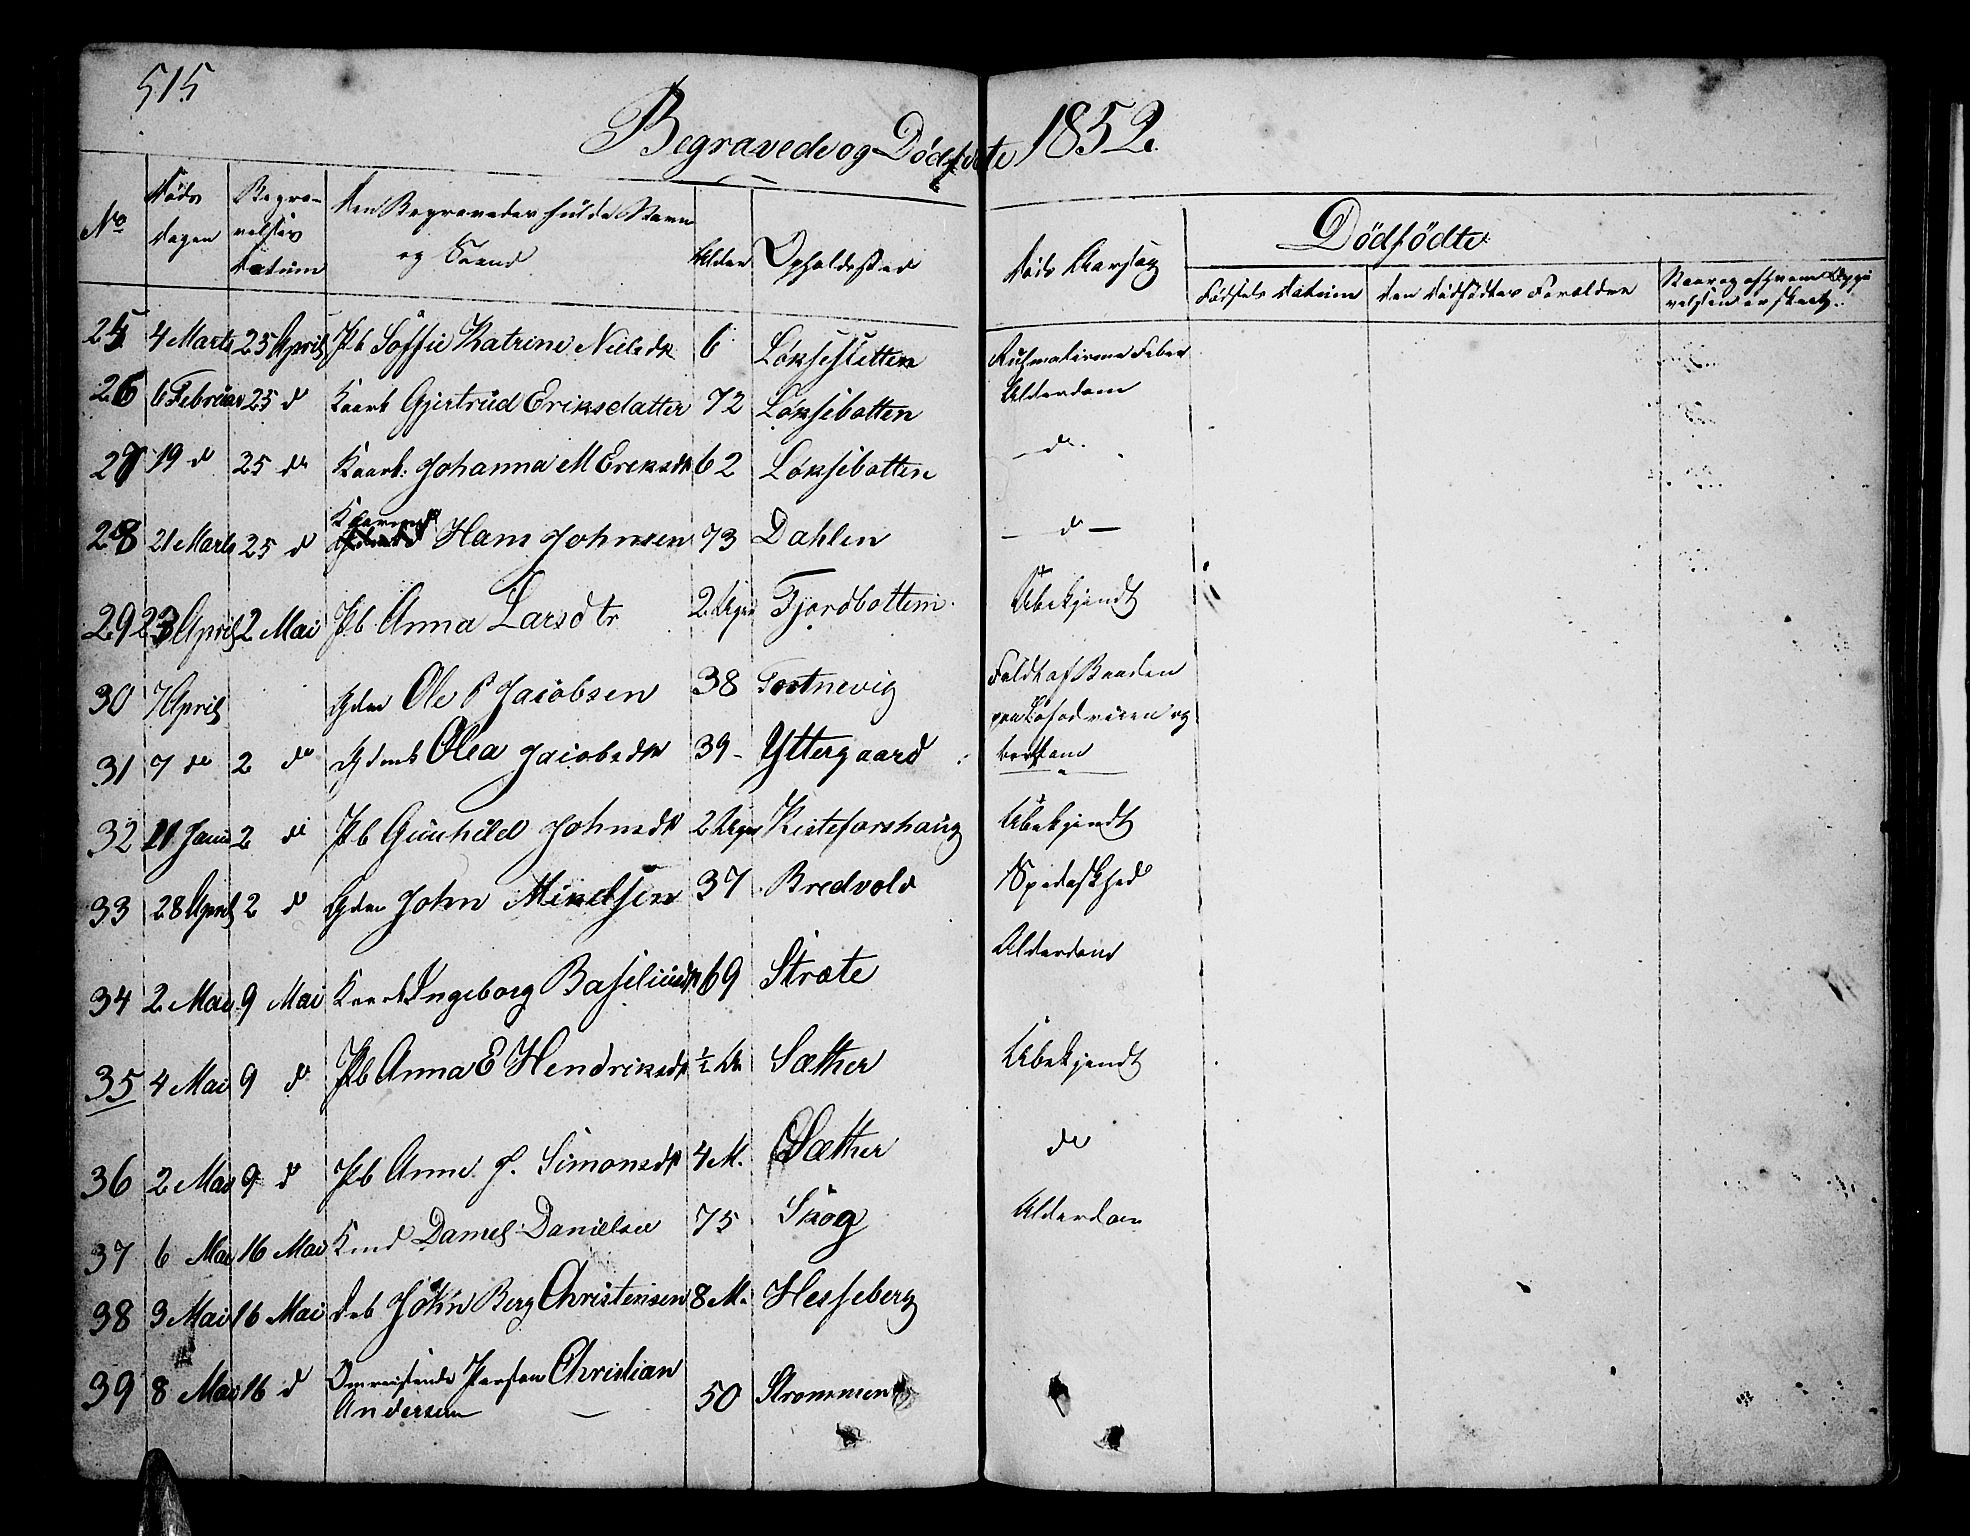 515
Begravede og Dødfødte 1852.
No Døds Dagen Begravelses Datum Den Begravedes fulde Navn og Stand Alder Opholdssted Døds Aarsag Dødfødte
Fødsels Datum Den Dødfødtes Forældre
25 4 Marts 25 April Pb Soffie Katrine Nielsdr 6 Løksesletten Feber
26 6 Februar 25 d Kaark Gjertrud Eriksdatter 72 Løksebotten Alderdom
27 19 d 25 do Kaark. Johanna M Ereksdr 62 Løksebotten - do -
28 21 Marts 25 d Kaarmd Hans Johnsen 73 Dahlen - d -
29 23 April 2 Mai Pb Anna Larsdtr 2 Uger Fjordbotten Ubekjendt
30 7 April Gdm Ole P Jacobsen 38 Tostnevig Faldt af Baaden
paa Lofodreisen og
31 7 do 2 do Gdmk Olea Jacobsdr 39 - Yttergaard bortkom
32 11 Janu 2 d Pb Gunhild Johnsdr 2 Uger Kisteforshaug Ubekjendt
33 28 April 2 d Gdm John Mikelsen 37 Bredvold Spedalskhed
34 2 Mai 9 Mai Kaark Ingeborg Basiliusdr 69 Stræte Alderdom
35 4 Mai 9 d Pb Anna E Hendriksdr ½ Sæther Ubekjendt
36 2 Mai 9 d Pb Anne J. Simonsdr 4 M. Sæther do
37 6 Mai 16 Mai Daniel Danielsen 75 Skog Alderdom
38 3 Mai 16 Mai John Berg Christensen 8 M. Hesseberg
39 8 Mai 16 d Omreisende Person Christian
Andersen 50 Strømmen